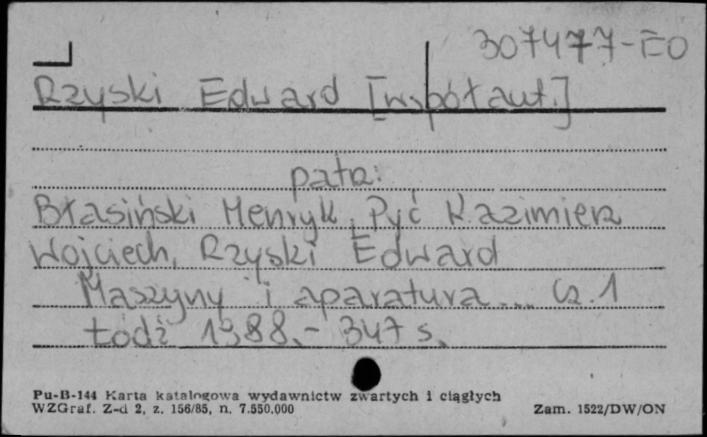 307477-EO
Rzyski Edward [współaut.]
patrz:
Błasiński Henryk, Pyć Kazimierz
Wojciech, Rzyski Edward
Maszyny i aparatura... Cz. 1
Łódź 1988.- 347 s.
Pu-B-144 Karta katalogowa wydawnictw zwartych i ciągłych
WZGraf. Z-d 2, z. 156/85, n. 7.550.000 Zam. 1522/DW/ON